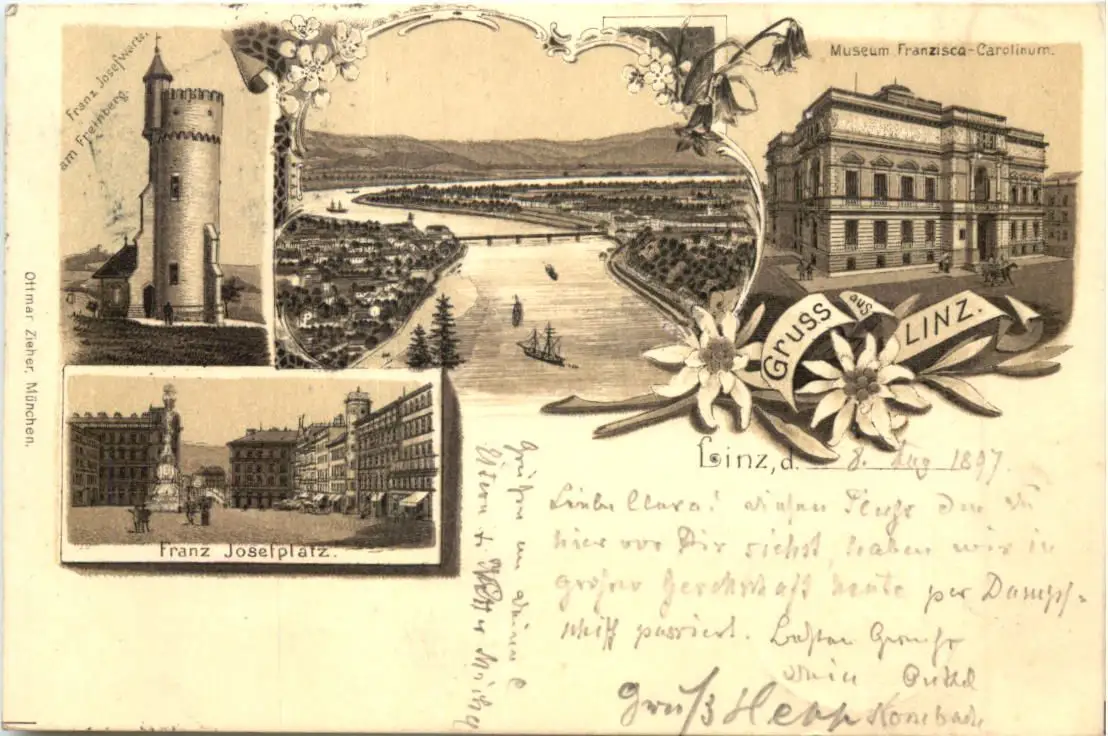 Franz Josefwarte.
am Freinberg.
Museum Franzisca-Carolinum.
Gruss
aus
LINZ.
Ottmar Zieher, München.
Franz Josefplatz.
Linz, d. 8. Aug 1897.
Liebe Clara! diesen Fluss den Du
hier vor Dir siehst, haben wir in
großer Gesellschaft heute per Dampf=
schiff passiert. Besten Gruß
Dein
Gruß
Grüße an deine l.
Eltern u.